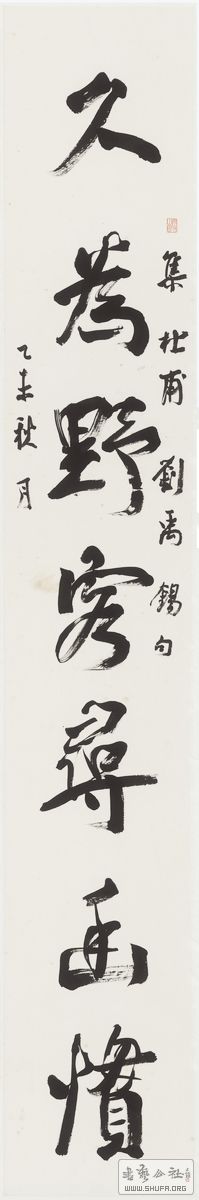 集杜甫劉禹錫句
久為野客尋幽慣
乙未秋月
書藝公社
WWW.SHUFA.ORG